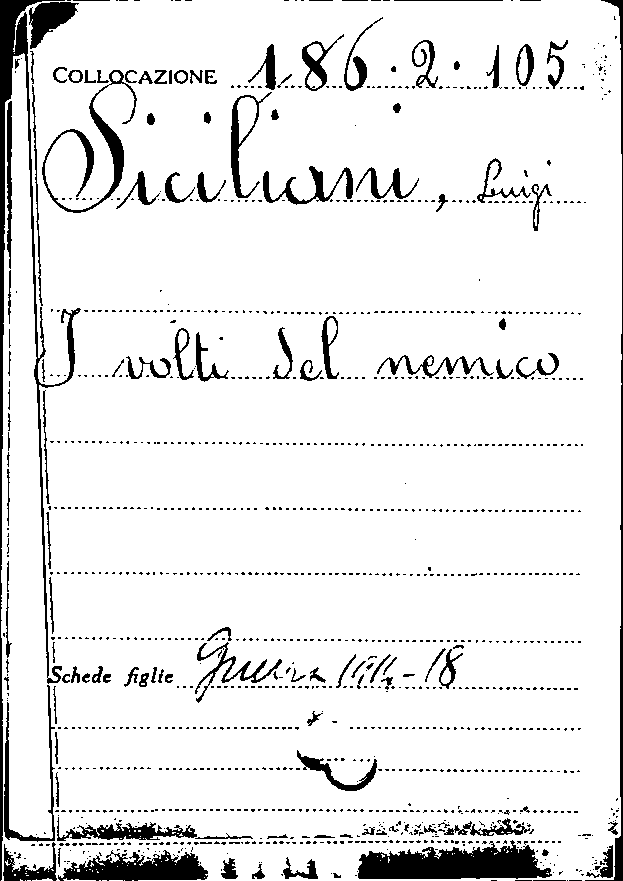 COLLOCAZIONE 186.2.105
Siciliani, Luigi
I volti del nemico
Schede figlie Guerra 1914-18